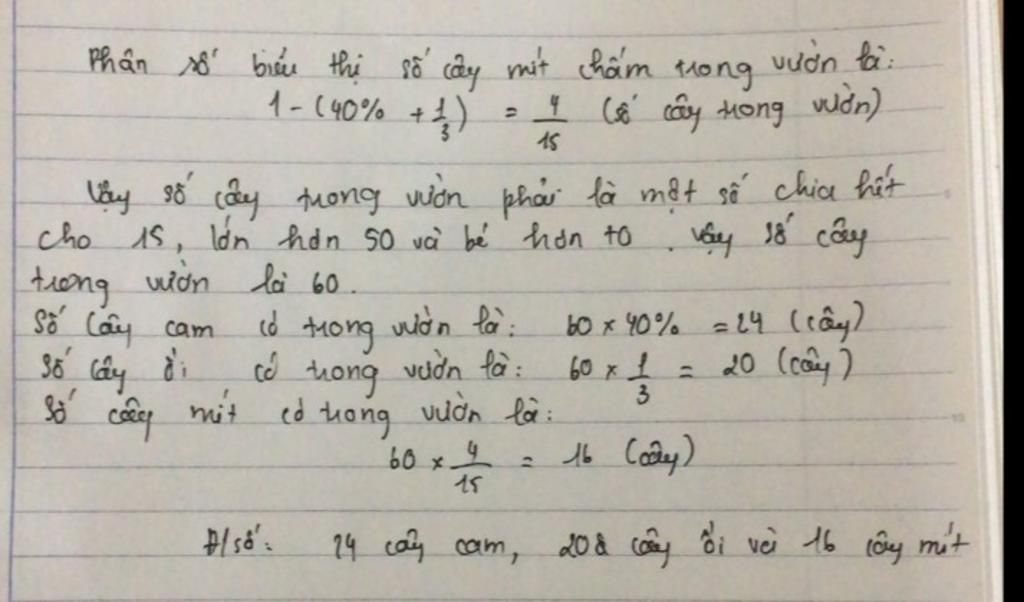 Phân số biểu thị số cây mít chấm trong vườn là:
1 - (40% + 1/3) = 4/15 (số cây trong vườn)
Vậy số cây trong vườn phải là một số chia hết
cho 15, lớn hơn 50 và bé hơn 70. Vậy số cây
trong vườn là 60.
Số cây cam có trong vườn là: 60 × 40% = 24 (cây)
Số cây ổi có trong vườn là: 60 × 1/3 = 20 (cây)
Số cây mít có trong vườn là:
60 × 4/15 = 16 (cây)
Đ/số: 24 cây cam, 20 cây ổi và 16 cây mít